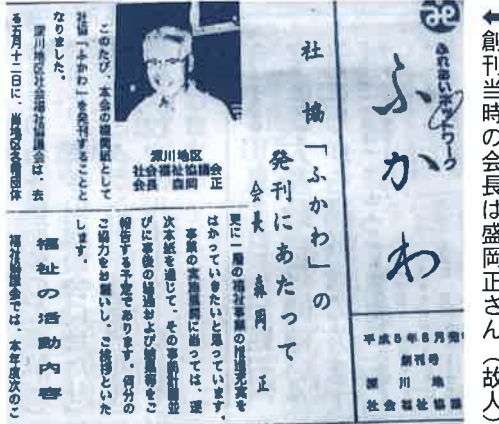 ←創刊当時の会長は盛岡正さん（故人）
ふれあいネットワーク
ふかわ
平成5年6月発
創刊号
深川地
社会福祉協議
社協「ふかわ」の
発刊にあたって
会長 森岡 正
深川地区
社会福祉協議会
会長 森岡 正
このたび、本会の機関紙として
社協「ふかわ」を発刊することと
なりました。
深川地区社会福祉協議会は、去
る五月十二日に、当地区各種団体
更に一層の福祉事業の推進充実を
はかっていきたいと思っています。
事業の実施展開に当っては、逐
次本紙を通じて、その事前計画並
びに事後の経過および結果等をご
報告する予定であります。何分の
ご協力をお願いし、ご挨拶といた
します。
福祉の活動内容
福祉協議会では、本年度次のこ